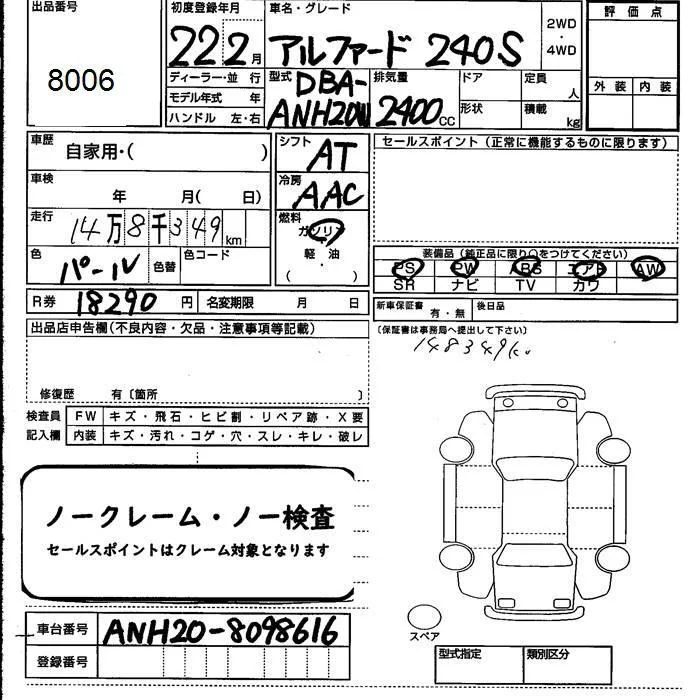 出品番号
8006
初度登録年月
22 2月
車名・グレード
アルファード 240S
2WD
・
4WD
評価点
外装 内装
ディーラー・並行
モデル年式 年
ハンドル 左・右
型式
DBA-
ANH20W
排気量
2400cc
ドア
形状
定員
人
積載
kg
車歴
自家用・( )
車検
年 月( 日)
走行
14万8千349km
色
パール
色替
色コード
シフト
AT
冷房
AAC
燃料
ガソリン
軽・油
・
( )
セールスポイント(正常に機能するものに限ります)
装備品(純正品に限り○をつけてください)
PS PW ABS エアB AW
SR ナビ TV カワ
R券 18290円
名変期限 月 日
新車保証書
有・無
後日品
(保証書は事務局へ提出して下さい)
148349km
出品店申告欄(不良内容・欠品・注意事項等記載)
修復歴 有〔箇所 〕
検査員
記入欄
FW キズ・飛石・ヒビ割・リペア跡・X要
内装 キズ・汚れ・コゲ・穴・スレ・キレ・破レ
ノークレーム・ノー検査
セールスポイントはクレーム対象となります
スペア
車台番号
ANH20-8098616
登録番号
型式指定
類別区分